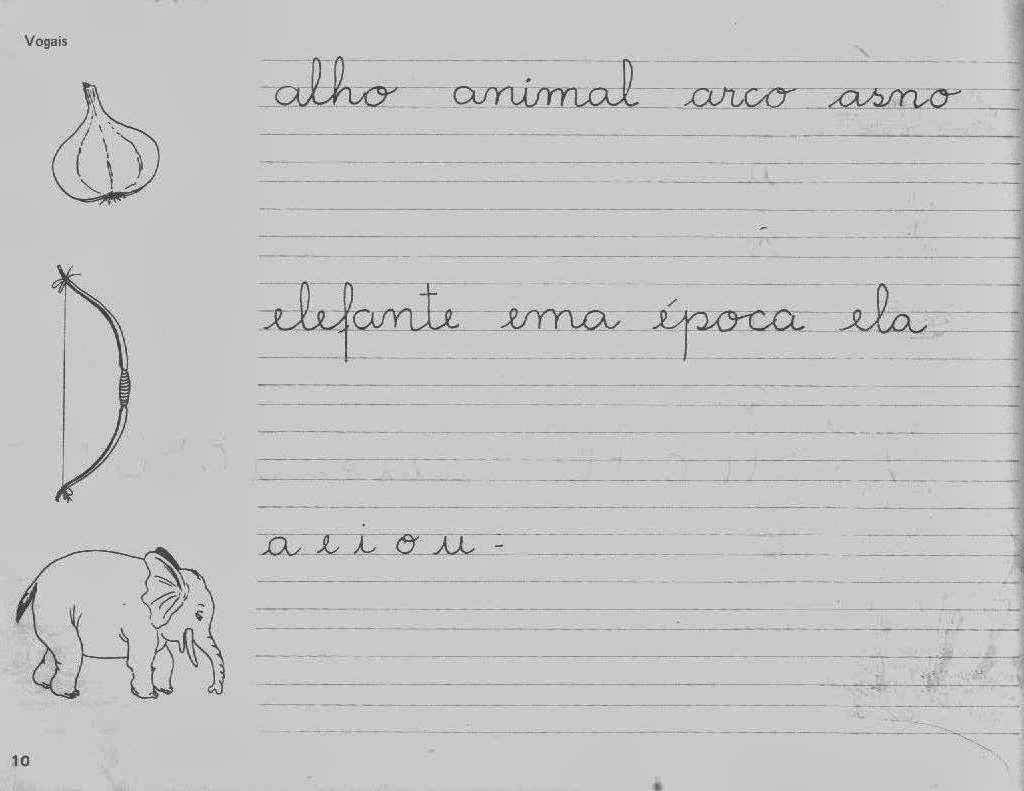 Vogais
alho animal arco asno
elefante ema época ela
a e i o u -
10